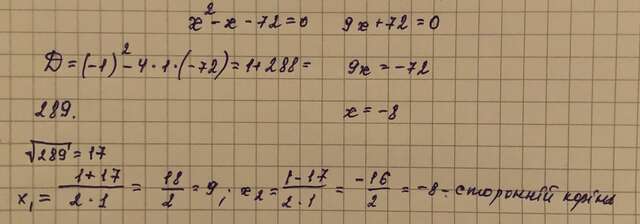 x² - x - 72 = 0    9x + 72 = 0
D = (-1)² - 4 · 1 · (-72) = 1 + 288 =    9x = -72
289.    x = -8
√289 = 17
x₁ = (1 + 17)/(2 · 1) = 18/2 = 9; x₂ = (1 - 17)/(2 · 1) = -16/2 = -8 - сторонній корінь